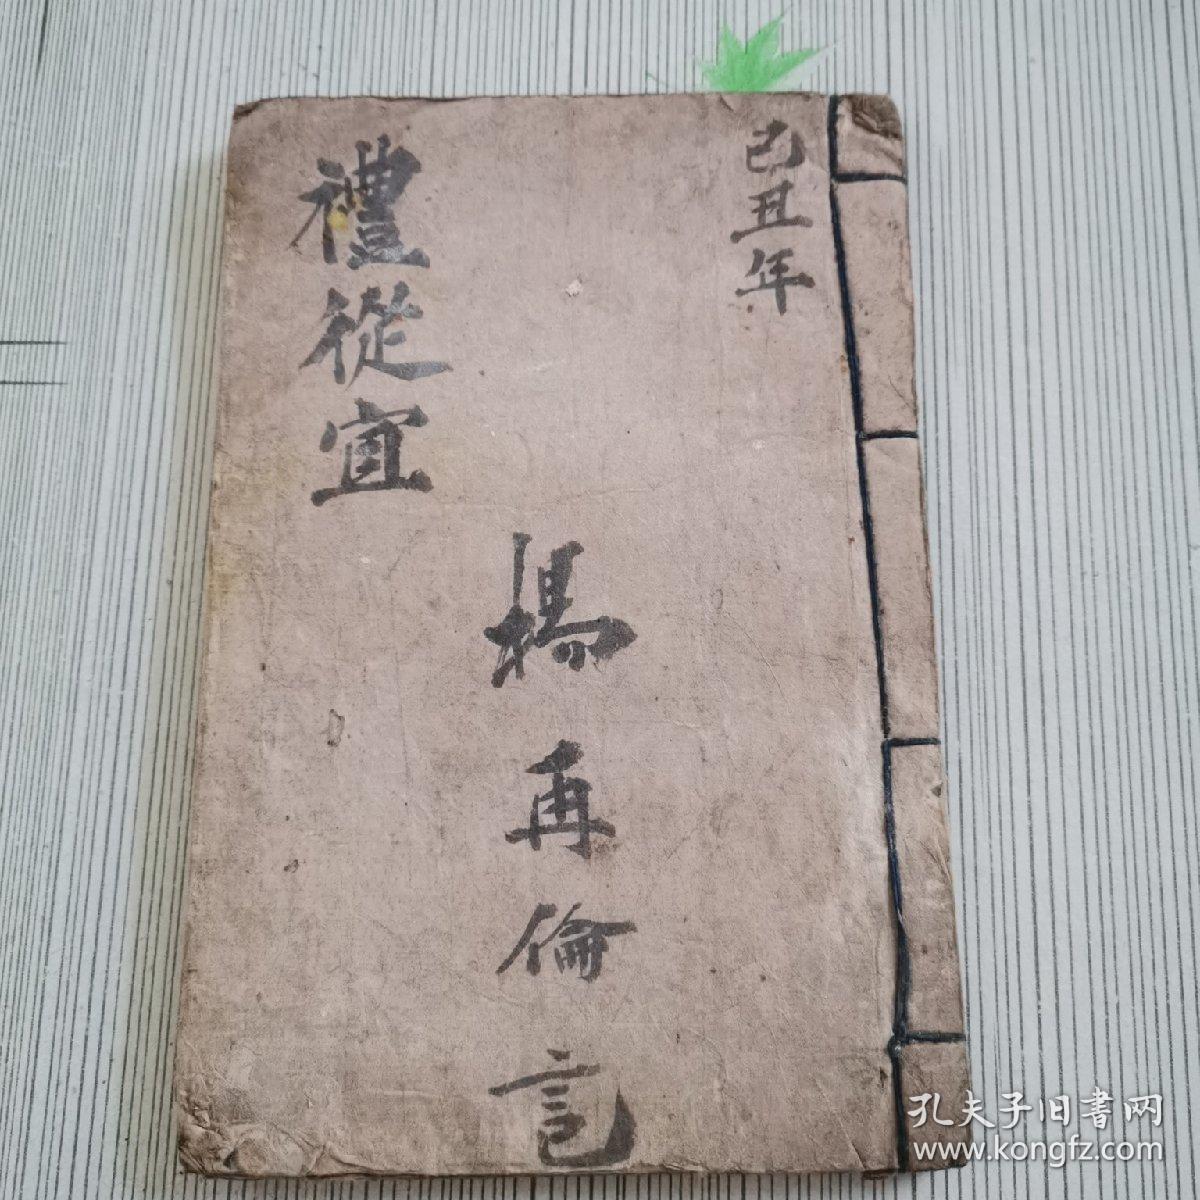 己丑年
禮從宜
楊再倫言
孔夫子旧書网
www.kongfz.com